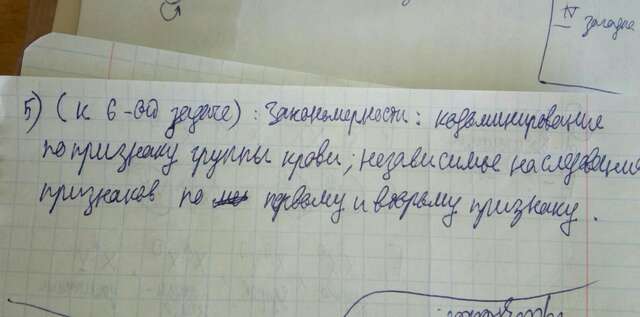 загадка
5) (к 6-ой задаче): Закономерности: кодоминирование
по признаку группы крови; независимое наследование
признаков по первому и второму признаку.